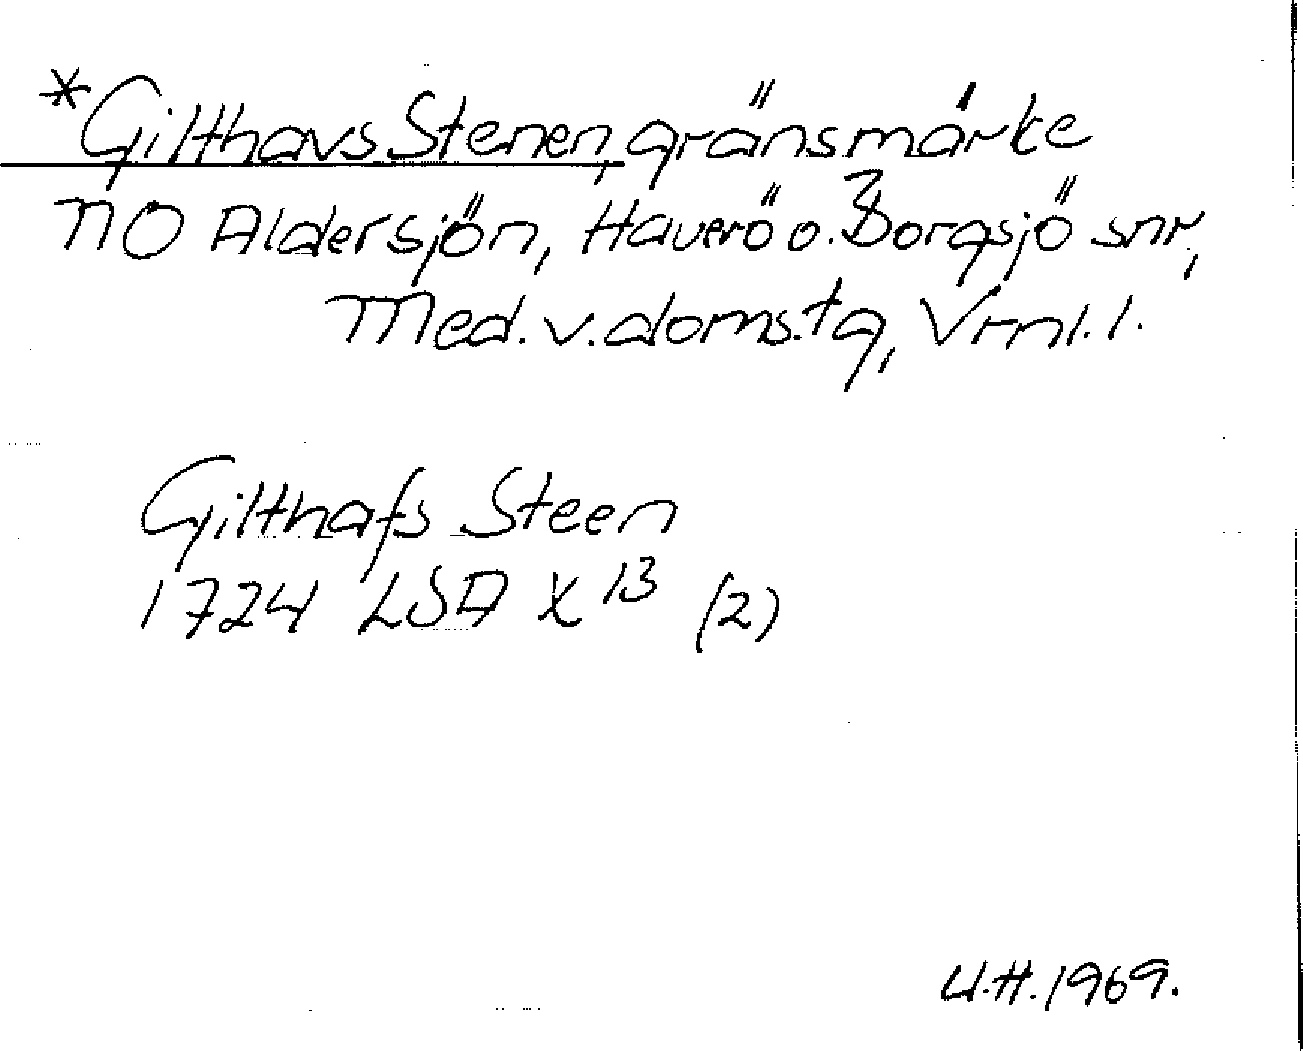 *Gilthavs Stenen, gränsmärke
NO Aldersjön, Haverö o. Borgsjö snr,
Med. v. doms. tg, Vrnl. l.
Gilthafs Steen
1724 LSA X 13 (2)
U.H. 1969.